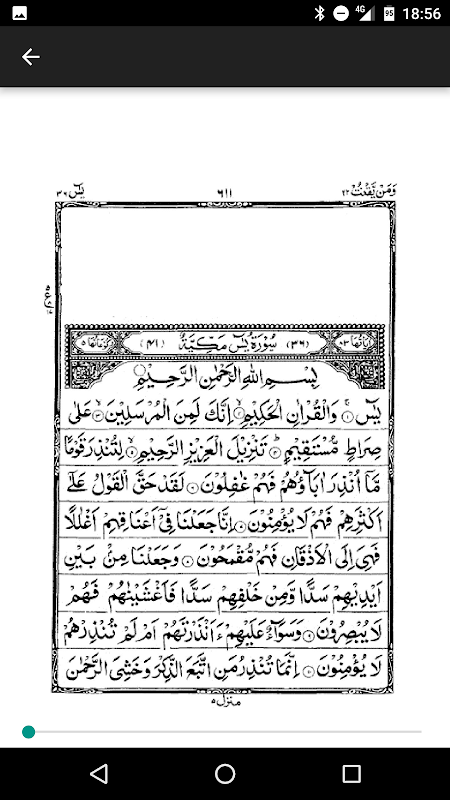 4G 95 18:56
وَمَنْ يَّقْنُتْ ٢٢ ٦١١ يٰسٓ ٣٦
اٰيَاتُهَا ٨٣ (٣٦) سُوْرَةُ يٰسٓ مَكِّيَّةٌ (٤١) رُكُوْعَاتُهَا ٥
بِسْمِ اللهِ الرَّحْمٰنِ الرَّحِيْمِ
يٰسٓ ۝١ وَالْقُرْاٰنِ الْحَكِيْمِ ۝٢ اِنَّكَ لَمِنَ الْمُرْسَلِيْنَ ۝٣ عَلٰى
صِرَاطٍ مُّسْتَقِيْمٍ ۝٤ تَنْزِيْلَ الْعَزِيْزِ الرَّحِيْمِ ۝٥ لِتُنْذِرَ قَوْمًا
مَّآ اُنْذِرَ اٰبَآؤُهُمْ فَهُمْ غٰفِلُوْنَ ۝٦ لَقَدْ حَقَّ الْقَوْلُ عَلٰٓى
اَكْثَرِهِمْ فَهُمْ لَا يُؤْمِنُوْنَ ۝٧ اِنَّا جَعَلْنَا فِيْٓ اَعْنَاقِهِمْ اَغْلٰلًا
فَهِيَ اِلَى الْاَذْقَانِ فَهُمْ مُّقْمَحُوْنَ ۝٨ وَجَعَلْنَا مِنْۢ بَيْنِ
اَيْدِيْهِمْ سَدًّا وَّمِنْ خَلْفِهِمْ سَدًّا فَاَغْشَيْنٰهُمْ فَهُمْ
لَا يُبْصِرُوْنَ ۝٩ وَسَوَآءٌ عَلَيْهِمْ ءَاَنْذَرْتَهُمْ اَمْ لَمْ تُنْذِرْهُمْ
لَا يُؤْمِنُوْنَ ۝١٠ اِنَّمَا تُنْذِرُ مَنِ اتَّبَعَ الذِّكْرَ وَخَشِيَ الرَّحْمٰنَ
منزل ٥